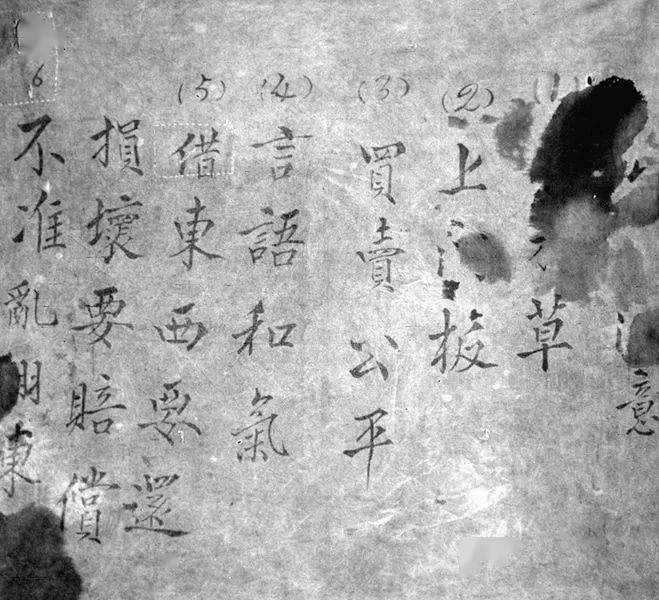 意
(1) 草
(2) 上門板
(3) 買賣公平
(4) 言語和氣
(5) 借東西要還
損壞要賠償
6 不准亂用東